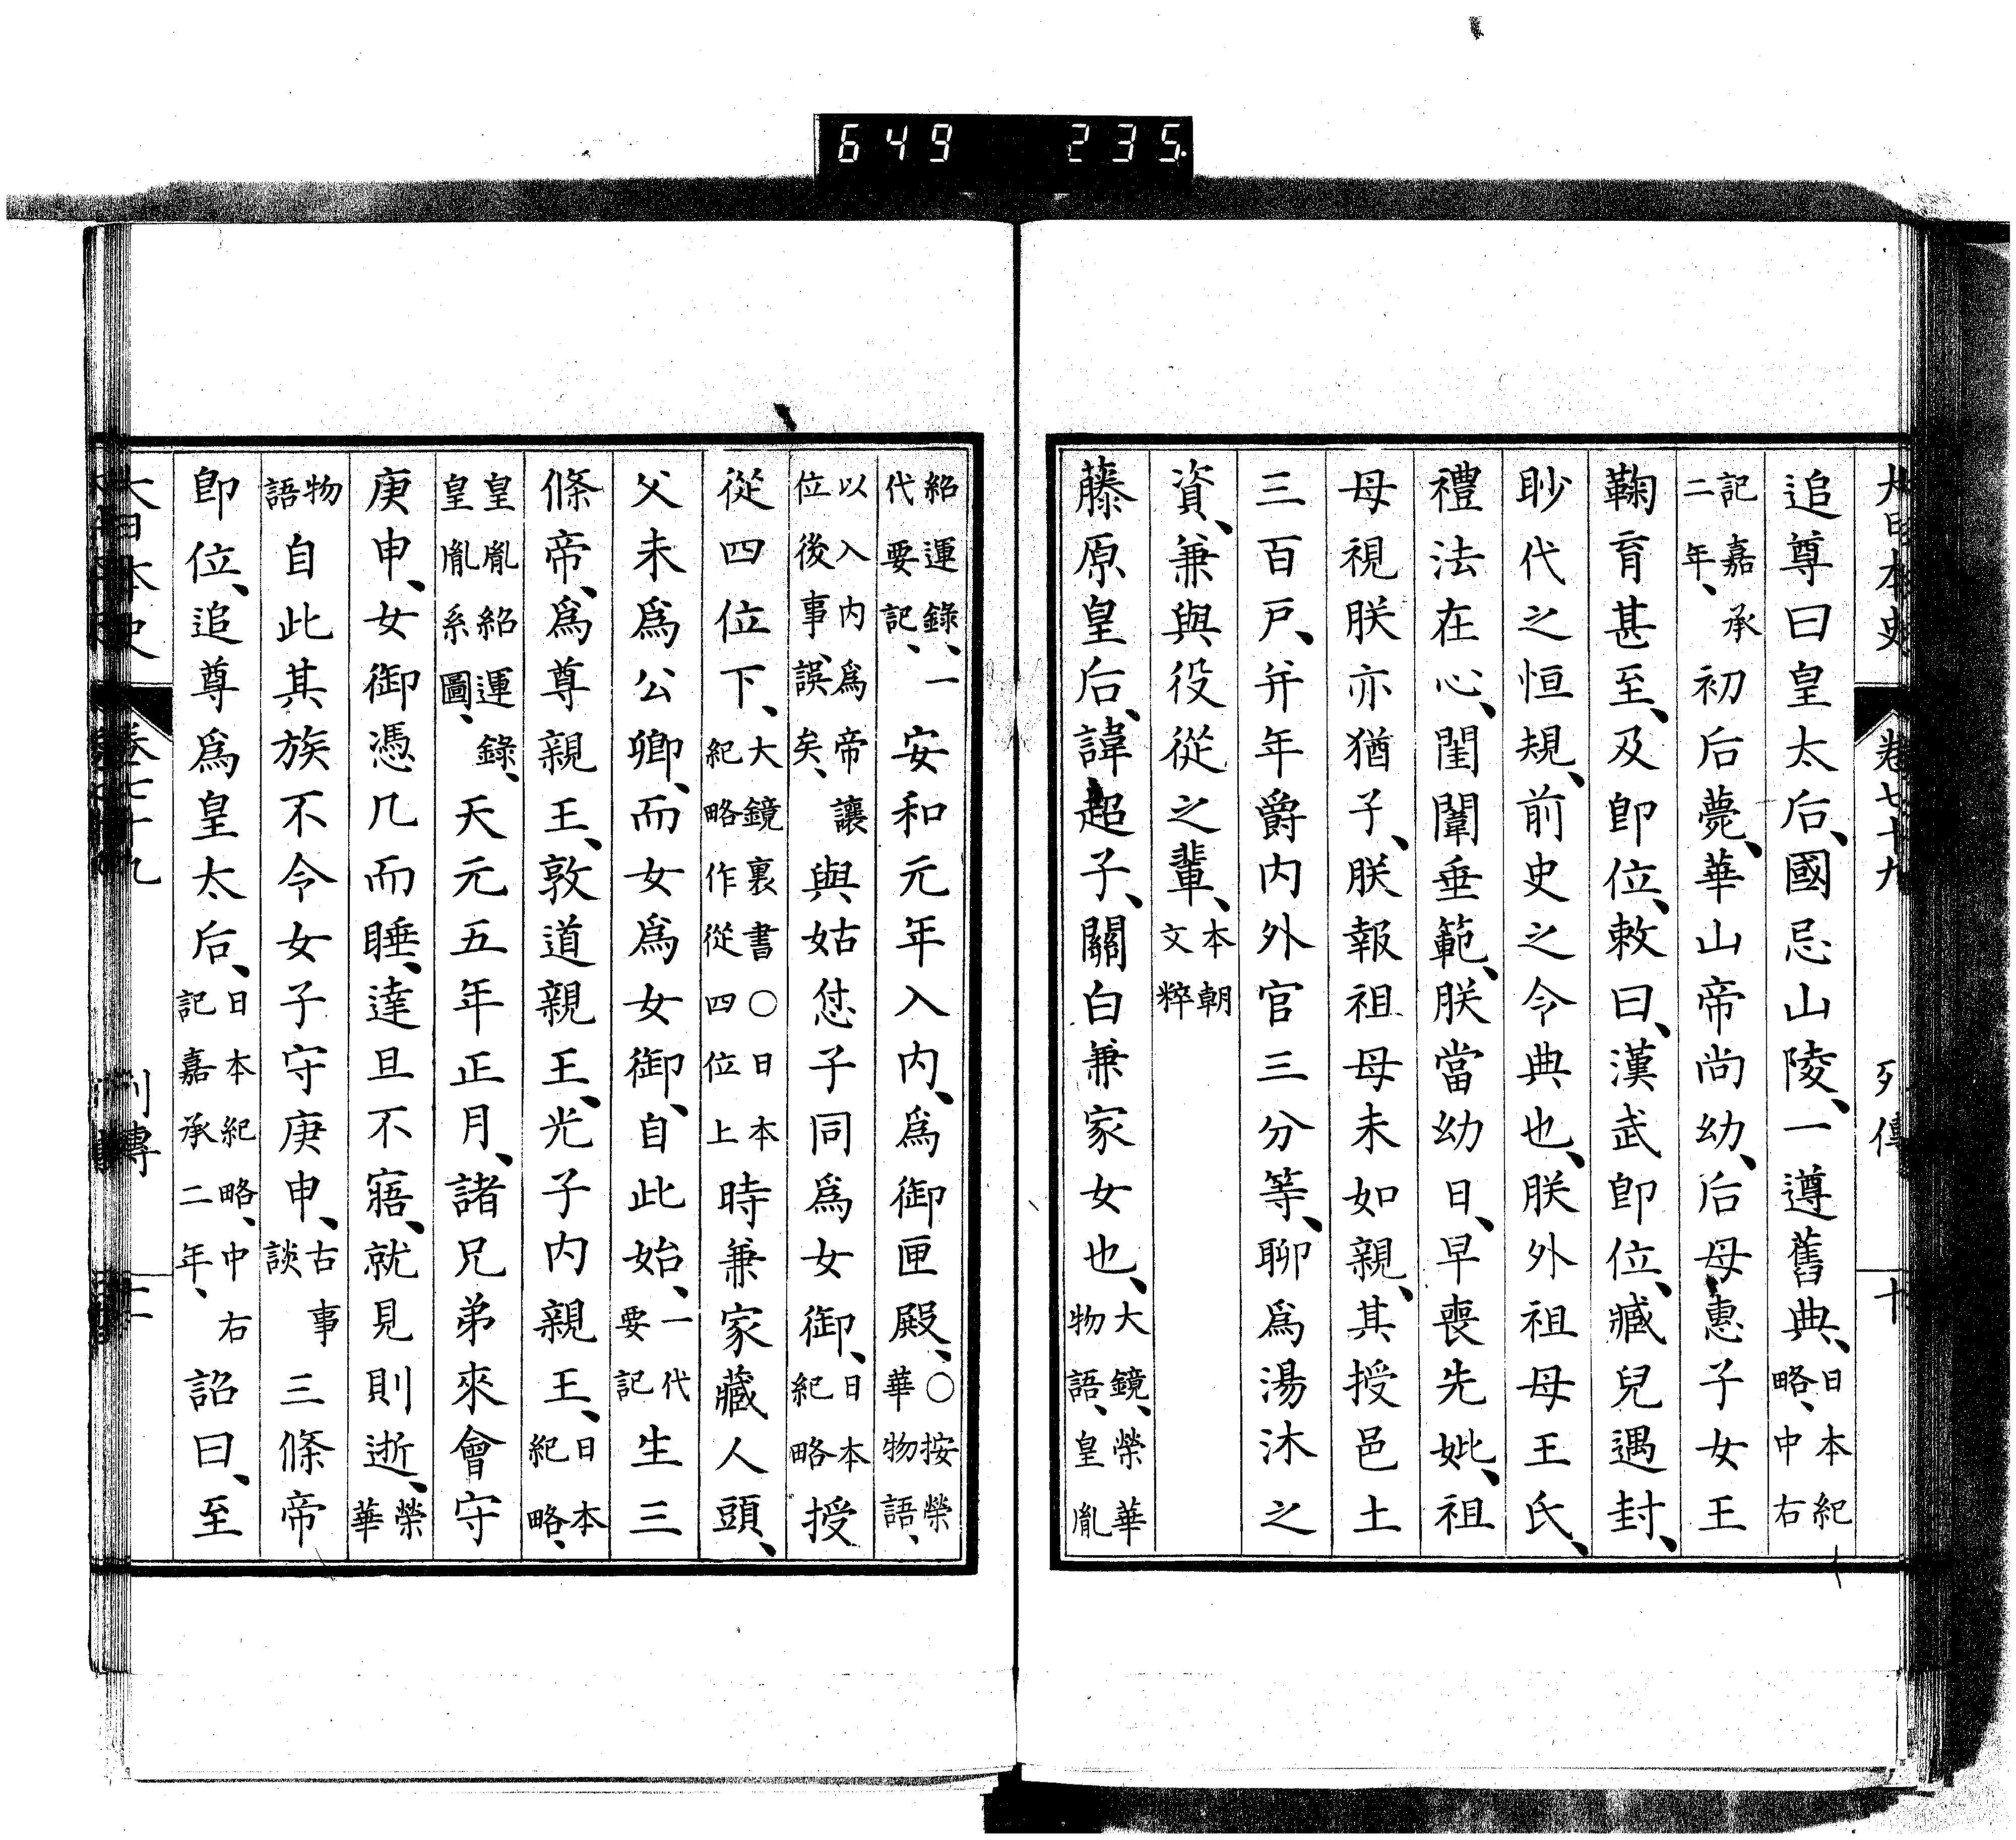 649 235
大日本史 卷七十九 列傳 十
追尊曰皇太后、國忌山陵、一遵舊典、日本紀略、中右
記嘉承二年、初后薨、華山帝尚幼、后母惠子女王
鞠育甚至、及即位、敕曰、漢武即位、臧兒遇封、
眇代之恒規、前史之令典也、朕外祖母王氏、
禮法在心、閨闈垂範、朕當幼日、早喪先妣、祖
母視朕亦猶子、朕報祖母未如親、其授邑土
三百戸、并年爵内外官三分等、聊爲湯沐之
資、兼與役從之輩、本朝文粹
藤原皇后、諱超子、關白兼家女也、大鏡、榮華物語、皇胤
紹運錄、一代要記、安和元年入内、爲御匣殿、○按榮華物語、
以入内爲帝讓位後事、誤矣、與姑怤子同爲女御、日本紀略授
從四位下、大鏡裏書○日本紀略作從四位上時兼家藏人頭、
父未爲公卿、而女爲女御、自此始、一代要記生三
條帝、爲尊親王、敦道親王、光子内親王、日本紀略、
皇胤紹運錄、皇胤系圖、天元五年正月、諸兄弟來會守
庚申、女御憑几而睡、達旦不寤、就見則逝、榮華
物語自此其族不令女子守庚申、古事談三條帝
即位、追尊爲皇太后、日本紀略、中右記嘉承二年、詔曰、至
大日本史 卷七十九 列傳